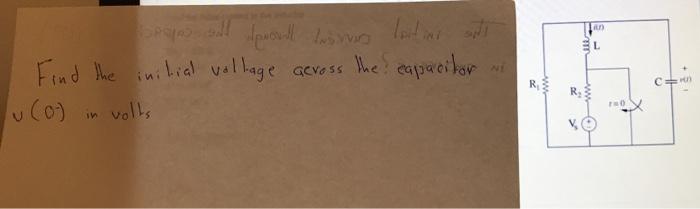 Find the initial voltage across the capacitor
v(0-) in volts
i(t)
L
R₁
R₂
C
+
v(t)
-
t=0
Vs
+
-